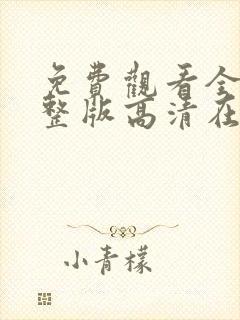 免費觀看全
整版高清在
小青檬